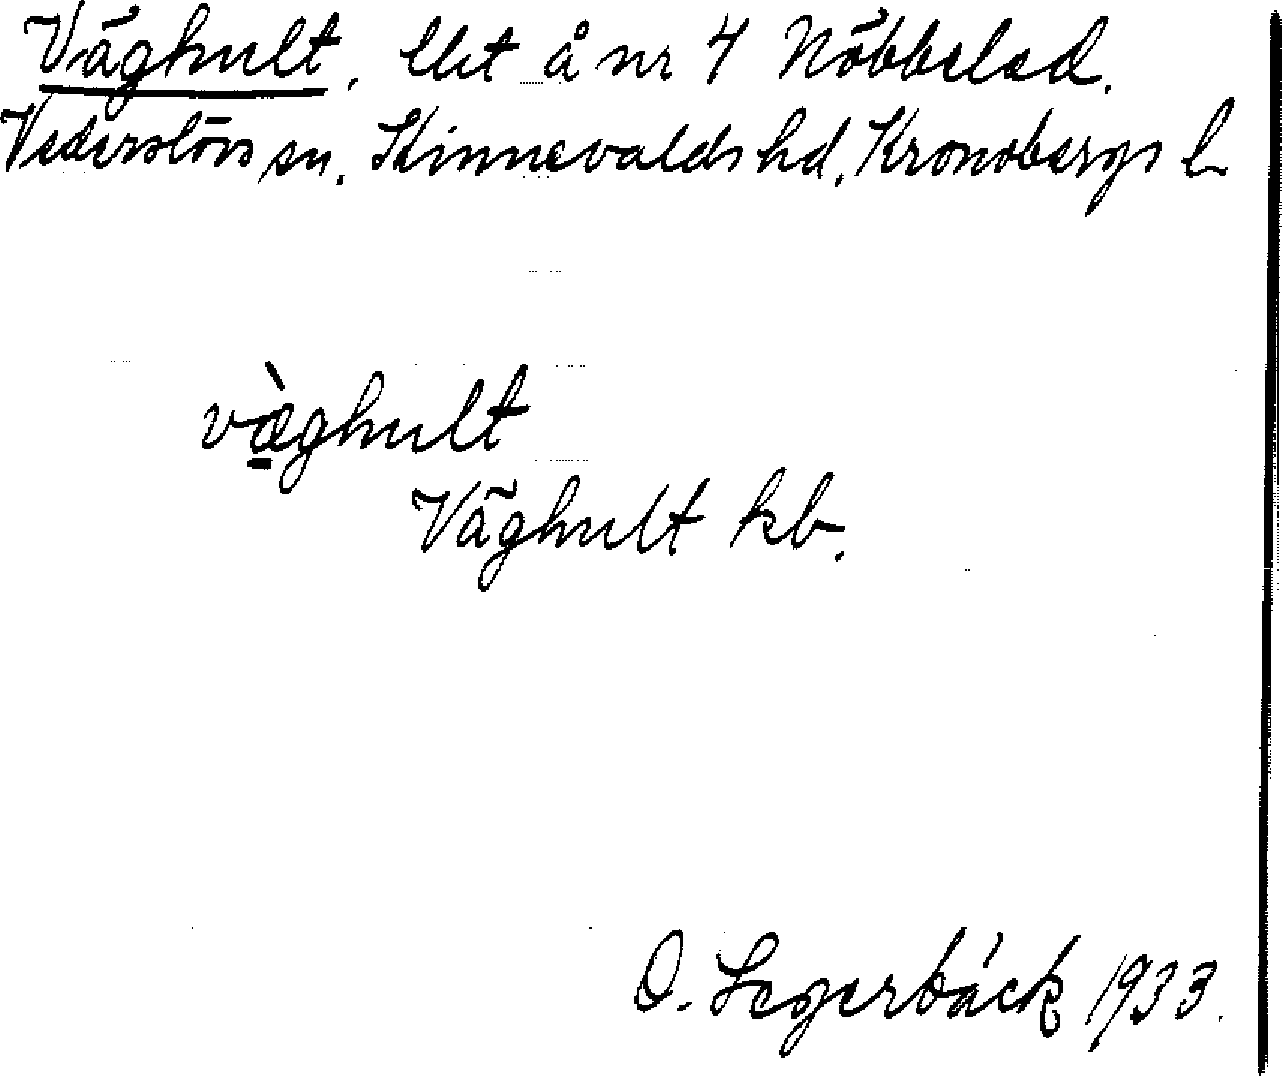 Väghult. lht å nr 4 Nöbbeled.
Vederslövs sn. Kinnevalds hd. Kronobergs l
væ̀ghult
Väghult kb.
O. Segerbäck 1933.